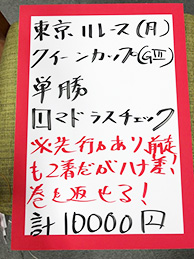 東京11レース(月)
クイーンカップ(GⅢ)
単勝
11マドラスチェック
※先行力あり、前走
も2着だがハナ差!
巻き返せる!
計10000円